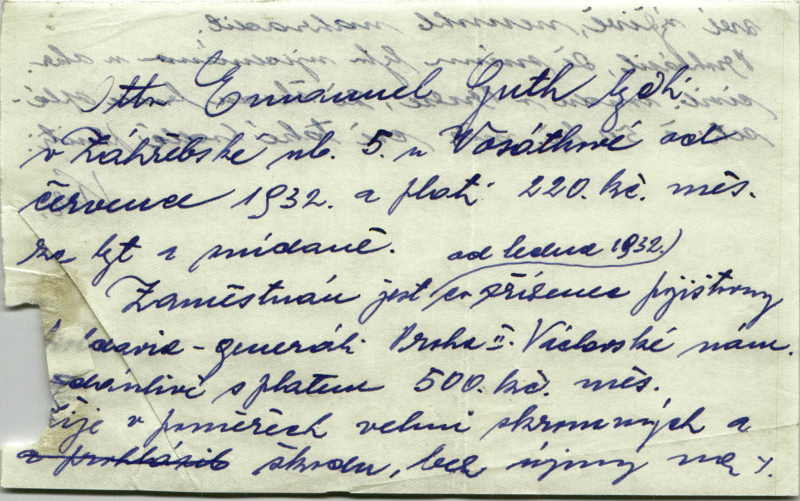 Otto Emanuel Guth bydlí
v Záhřebské ul. 5. u Vosátkové od
července 1932. a platí 220. kč. měs.
za byt a snídaně. od ledna 1932.)
Zaměstnán jest co přísenec pojišťovny
davia-generáli Praha II. Václavské nám.
s platem 500. kč. měs.
žije v poměrech velmi skromných a
a prohlásil škodu, bez újmy na v.